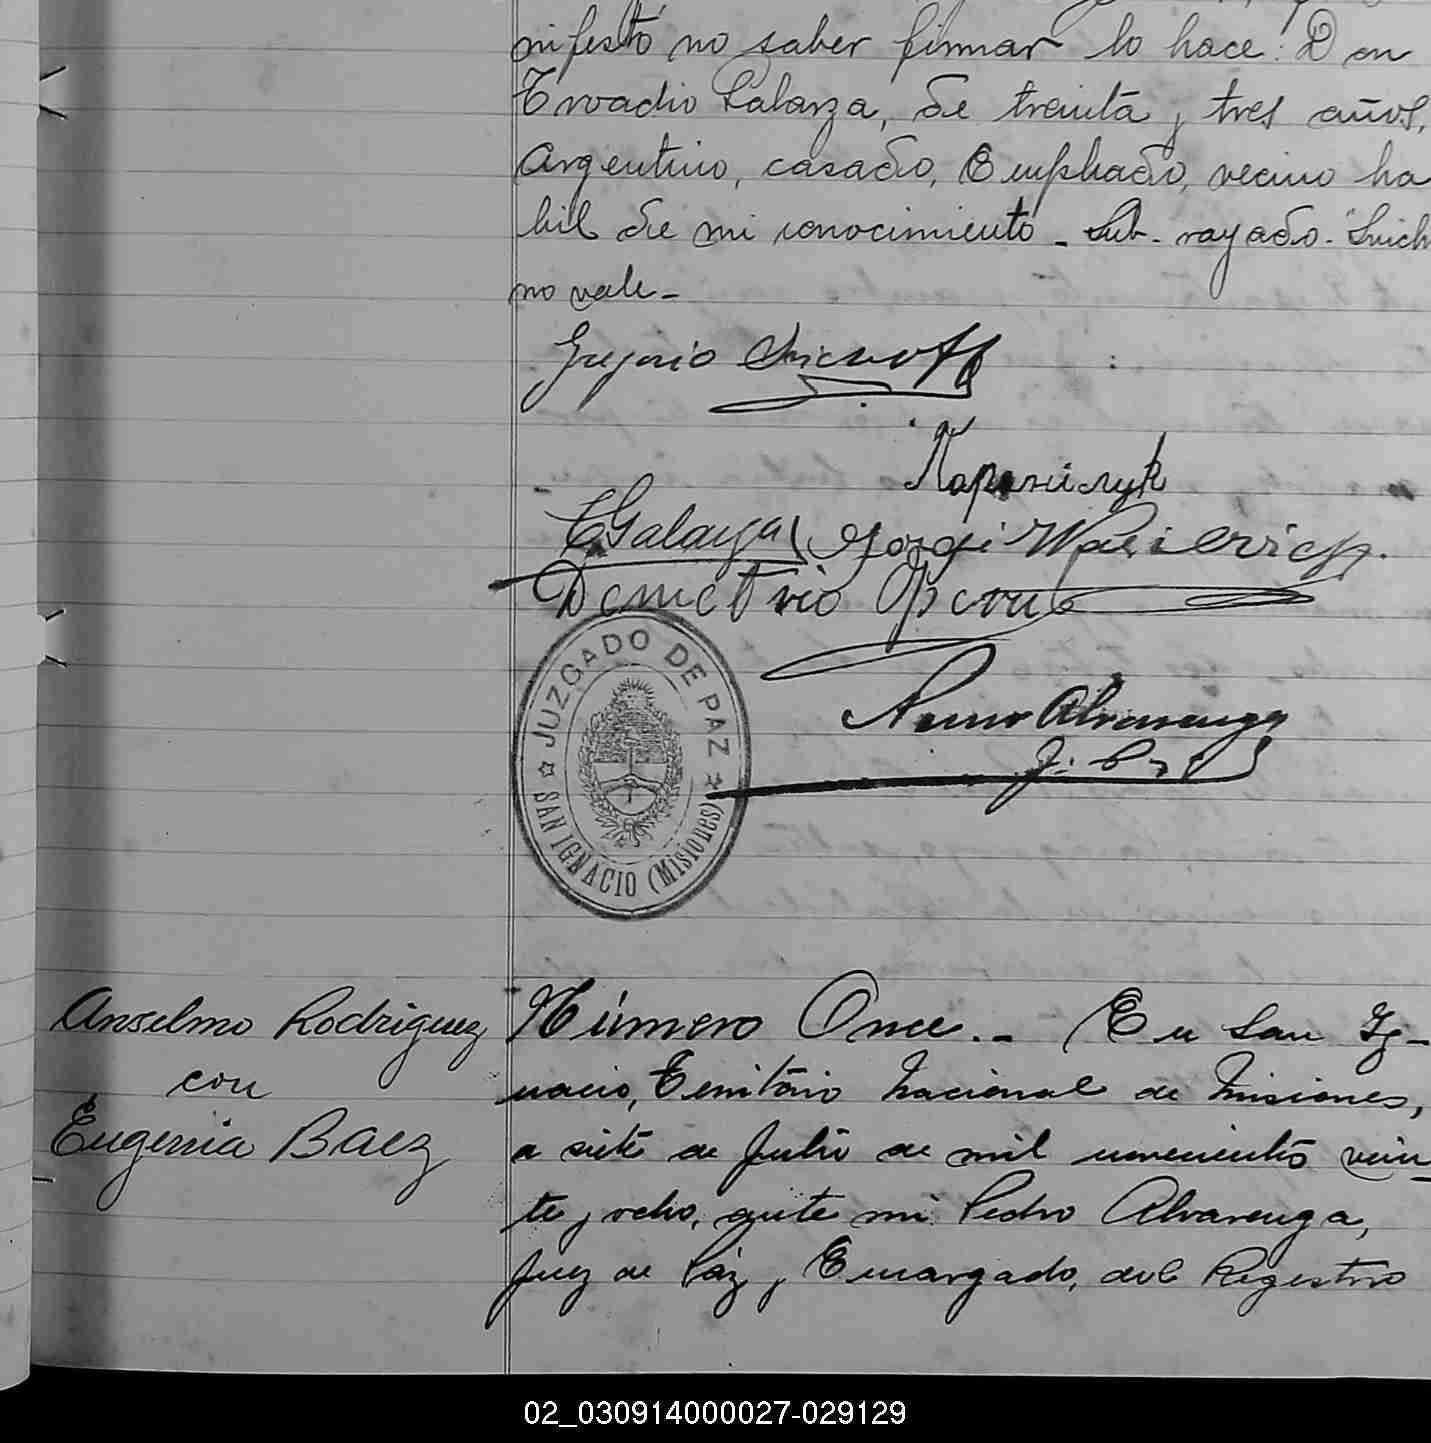 nifestó no saber firmar lo hace: Don
Galarza, de treinta y tres años,
Argentino, casado, Empleado, vecino ha
bil de mi conocimiento - Sub-rayado-
no vale-
Gregorio
Demetrio
Alvarenga
JUZGADO DE PAZ
SAN IGNACIO (MISIONES)
Anselmo Rodriguez
con
Eugenia Baez
Número Once.- En San Ig-
nacio, Territorio Nacional de Misiones,
a siete de Julio de mil novecientos vein-
te y ocho, ante mi Pedro Alvarenga,
Juez de Paz y Encargado, del Registro
02_030914000027-029129